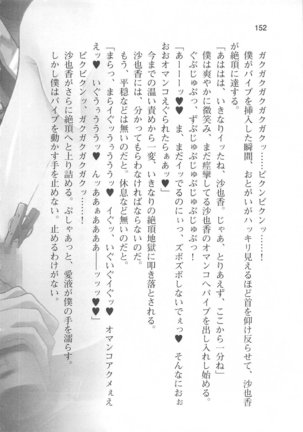 152
ガクガクガクガクガクッ……ビクンビクンッ……!
僕がバイブを挿入した瞬間、おとがいがハッキリ見えるほど首を仰け反らせて、沙也香
が絶頂に達する。
「あははは、いきなりイッたね、沙也香。じゃあ、とりあえず、ここから一分ね」
僕は爽やかに微笑み、まだ痙攣してる沙也香のオマンコへバイブを出し入れし始める。
ぐぷじゅぷっ、ずぷじゅぷじゅぷじゅぷっ!
「あーーーッ♥ま、まだイッてるのにぃっ、ズボズボしないでぇっ♥そんなにおお
おおオマンコえぐられたらぁぁッ♥」
今までの温い責めから一変、いきなりの絶頂地獄に叩き落とされる。
沙也香には、分かってもらわなければならないのだ。
もう、平穏などは無いのだと、休息など無いのだと。
「まらっ、まらイグッ♥うううっ♥イぐッ、いぐいぐイグッ♥オマンコアクメぇえ
えッ♥いぐうぅうううッ♥んッああぁあああーーッッッ♥♥」
ガクガクガクガクガクッ……ビクンビクンッ……!
沙也香がさらに絶頂へと上り詰める。ぷしゃあっと、愛液が僕の手を濡らす。
しかし僕はバイブを動かす手を止めない、止めるわけがない。